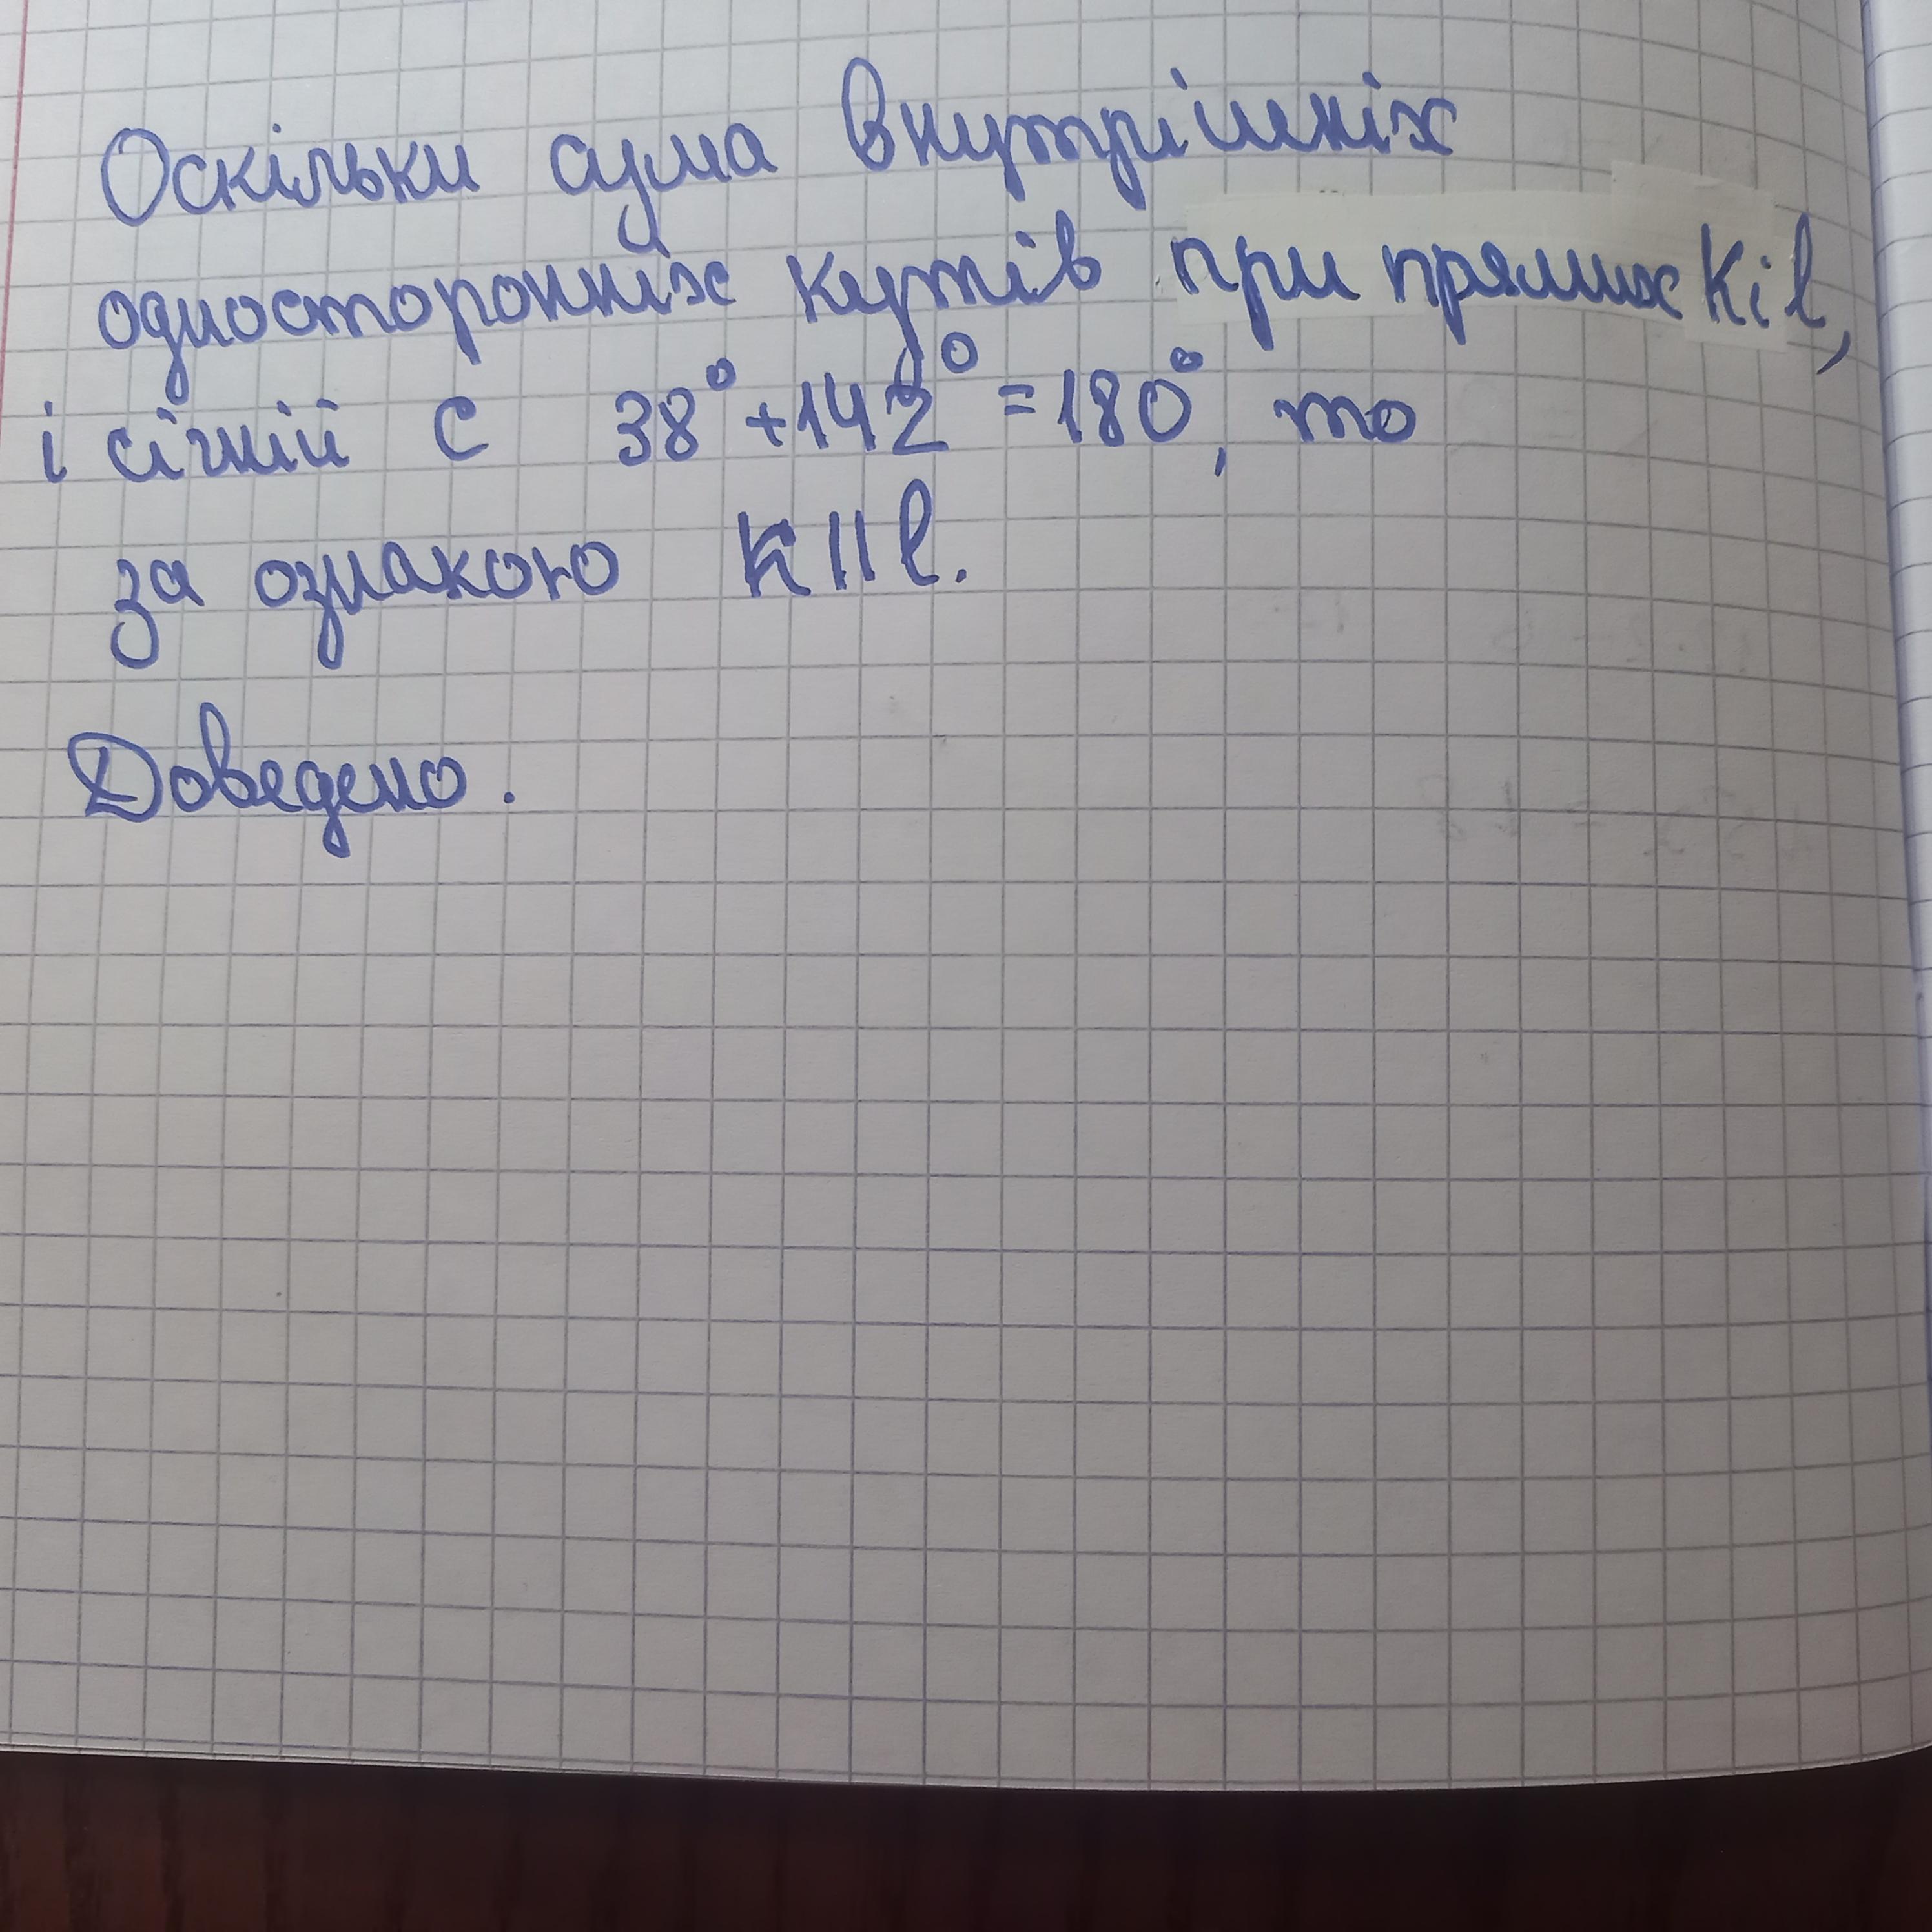 Оскільки сума внутрішніх
односторонніх кутів при прямих k і l,
і січній c 38° + 142° = 180°, то
за ознакою k || l.
Доведено.